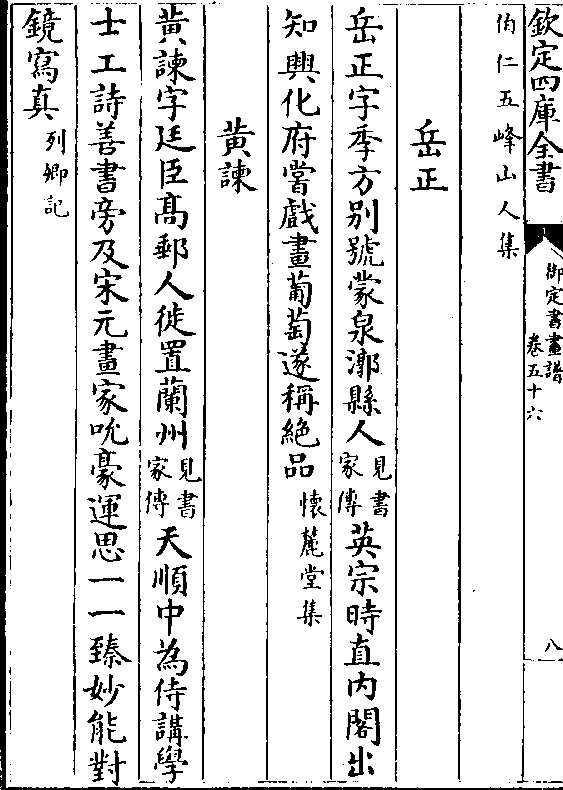 欽定四庫全書
御定書畫譜
卷五十六
八
伯仁五峰山人集
岳正
岳正字季方別號蒙泉漷縣人見書家傳英宗時直内閣出
知興化府嘗戲畫葡萄遂稱絶品懷麓堂集
黄諫
黄諫字廷臣髙郵人徙置蘭州見書家傳天順中為侍講學
士工詩善書旁及宋元畫家吮豪運思一一臻妙能對
鏡寫真列卿記